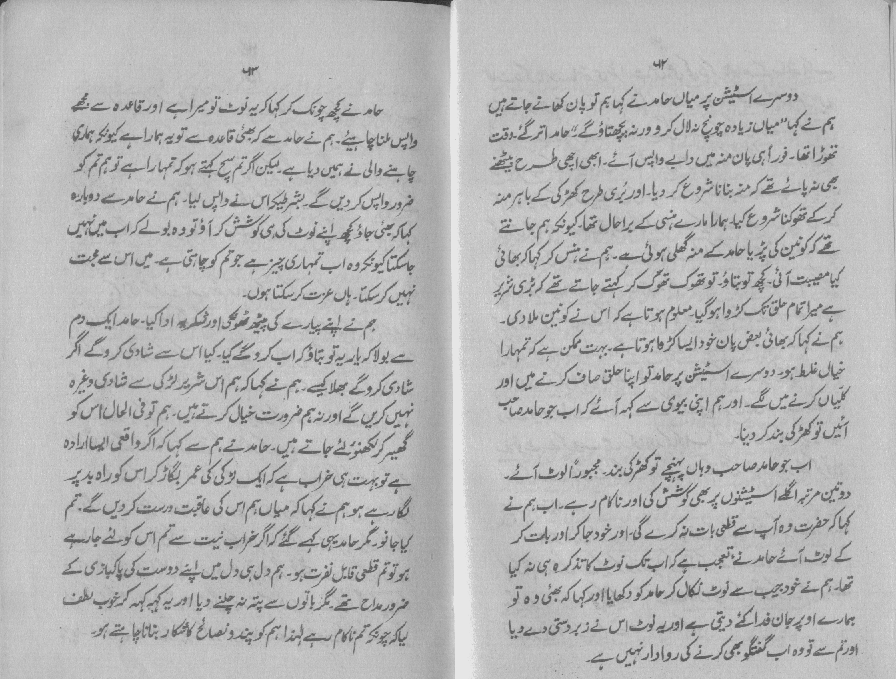 ۵۲
دوسرے اسٹیشن پر میاں حامد نے کہا ہم تو پان کھانے جاتے ہیں
ہم نے کہا "میاں زیادہ چونچ نہ لال کرو ورنہ پچھتاؤ گے" حامد اتر گئے۔ وقت
تھوڑا تھا۔ فوراً ہی پان منہ میں دابے واپس آئے۔ ابھی اچھی طرح بیٹھنے
بھی نہ پائے تھے کہ منہ بنانا شروع کر دیا۔ اور بُری طرح کھڑکی کے باہر منہ
کر کے تھوکنا شروع کیا۔ ہمارا مارے ہنسی کے برا حال تھا۔ کیونکہ ہم جانتے
تھے کہ کونین کی پڑیا حامد کے منہ گھلی ہوئی ہے۔ ہم نے ہنس کر کہا کہ بھائی
کیا مصیبت آئی۔ کچھ تو بتاؤ۔ تو تھوک تھوک کر کہتے جاتے تھے کہ بڑی شریر
ہے میرا تمام حلق تک کڑوا ہو گیا۔ معلوم ہوتا ہے کہ اس نے کونین ملا دی۔
ہم نے کہا کہ بھائی بعض پان خود ایسا کڑوا ہوتا ہے۔ بہت ممکن ہے کہ تمہارا
خیال غلط ہو۔ دوسرے اسٹیشن پر حامد تو اپنا حلق صاف کرنے میں اور
کلیاں کرنے میں لگے۔ اور ہم اپنی بیوی سے کہہ آئے کہ اب جو حامد صاحب
آئیں تو کھڑکی بند کر دینا۔
اب جو حامد صاحب وہاں پہنچے تو کھڑکی بند۔ مجبوراً لوٹ آئے۔
دو تین مرتبہ اگلے اسٹیشنوں پر بھی کوشش کی اور ناکام رہے۔ اب ہم نے
کہا کہ حضرت وہ آپ سے قطعی بات نہ کرے گی۔ اور خود جا کر اور بات کر
کے لوٹ آئے حامد نے تعجب ہے کہ اب تک نوٹ کا تذکرہ ہی نہ کیا
تھا۔ ہم نے خود جیب سے نوٹ نکال کر حامد کو دکھایا اور کہا کہ بھئی وہ تو
ہمارے اوپر جان فدا کئے دیتی ہے اور یہ نوٹ اس نے زبردستی دے دیا
اور تم سے تو وہ اب گفتگو بھی کرنے کی روادار نہیں ہے۔
۵۳
حامد نے کچھ چونک کر کہا کہ یہ نوٹ تو میرا ہے اور قاعدہ سے مجھے
واپس ملنا چاہیئے۔ ہم نے حامد سے کہ بھئی قاعدہ سے تو یہ ہمارا ہے کیونکہ ہماری
چاہنے والی نے ہمیں دیا ہے۔ لیکن اگر تم سچ کہتے ہو کہ تمہارا ہے تو ہم تم کو
ضرور واپس کر دیں گے۔ بشرطیکہ اس نے واپس لیا۔ ہم نے حامد سے دوبارہ
کہا کہ بھئی جاؤ کچھ اپنے نوٹ کی ہی کوشش کر آؤ تو وہ بولے کہ اب میں نہیں
جا سکتا کیونکہ وہ اب تمہاری چیز ہے جو تم کو چاہتی ہے۔ میں اس سے محبت
نہیں کر سکتا۔ ہاں عزت کر سکتا ہوں۔
ہم نے اپنے پیارے کی پیٹھ ٹھونکی اور شکریہ ادا کیا۔ حامد ایک دم
سے بولا کہ یار یہ تو بتاؤ کہ اب کرو گے کیا۔ کیا اس سے شادی کرو گے اگر
شادی کرو گے بھلا کیسے۔ ہم نے کہا کہ ہم اس شریر لڑکی سے شادی وغیرہ
نہیں کریں گے اور نہ ہم ضرورت خیال کرتے ہیں۔ ہم تو فی الحال اس کو
گھیر کر لکھنؤ لئے جاتے ہیں۔ حامد نے ہم سے کہا کہ اگر واقعی ایسا ارادہ
ہے تو بہت ہی خراب ہے کہ ایک لڑکی کی عمر بگاڑ کر اس کو راہ بد پر
لگا رہے ہو ہم نے کہا کہ میاں ہم اس کی عاقبت درست کر دیں گے۔ تم
کیا جانو۔ مگر حامد یہی کہے گئے کہ اگر خراب نیت سے تم اس کو لئے جا رہے
ہو تو تم قطعی قابل نفرت ہو۔ ہم دل ہی دل میں اپنے دوست کی پاکبازی کے
ضرور مداح تھے۔ مگر باتوں سے پتہ نہ چلنے دیا اور یہ کہہ کہہ کر خوب لطف
لیا کہ چونکہ تم ناکام رہے لہٰذا ہم کو پند و نصائح کا شکار بنانا چاہتے ہو۔